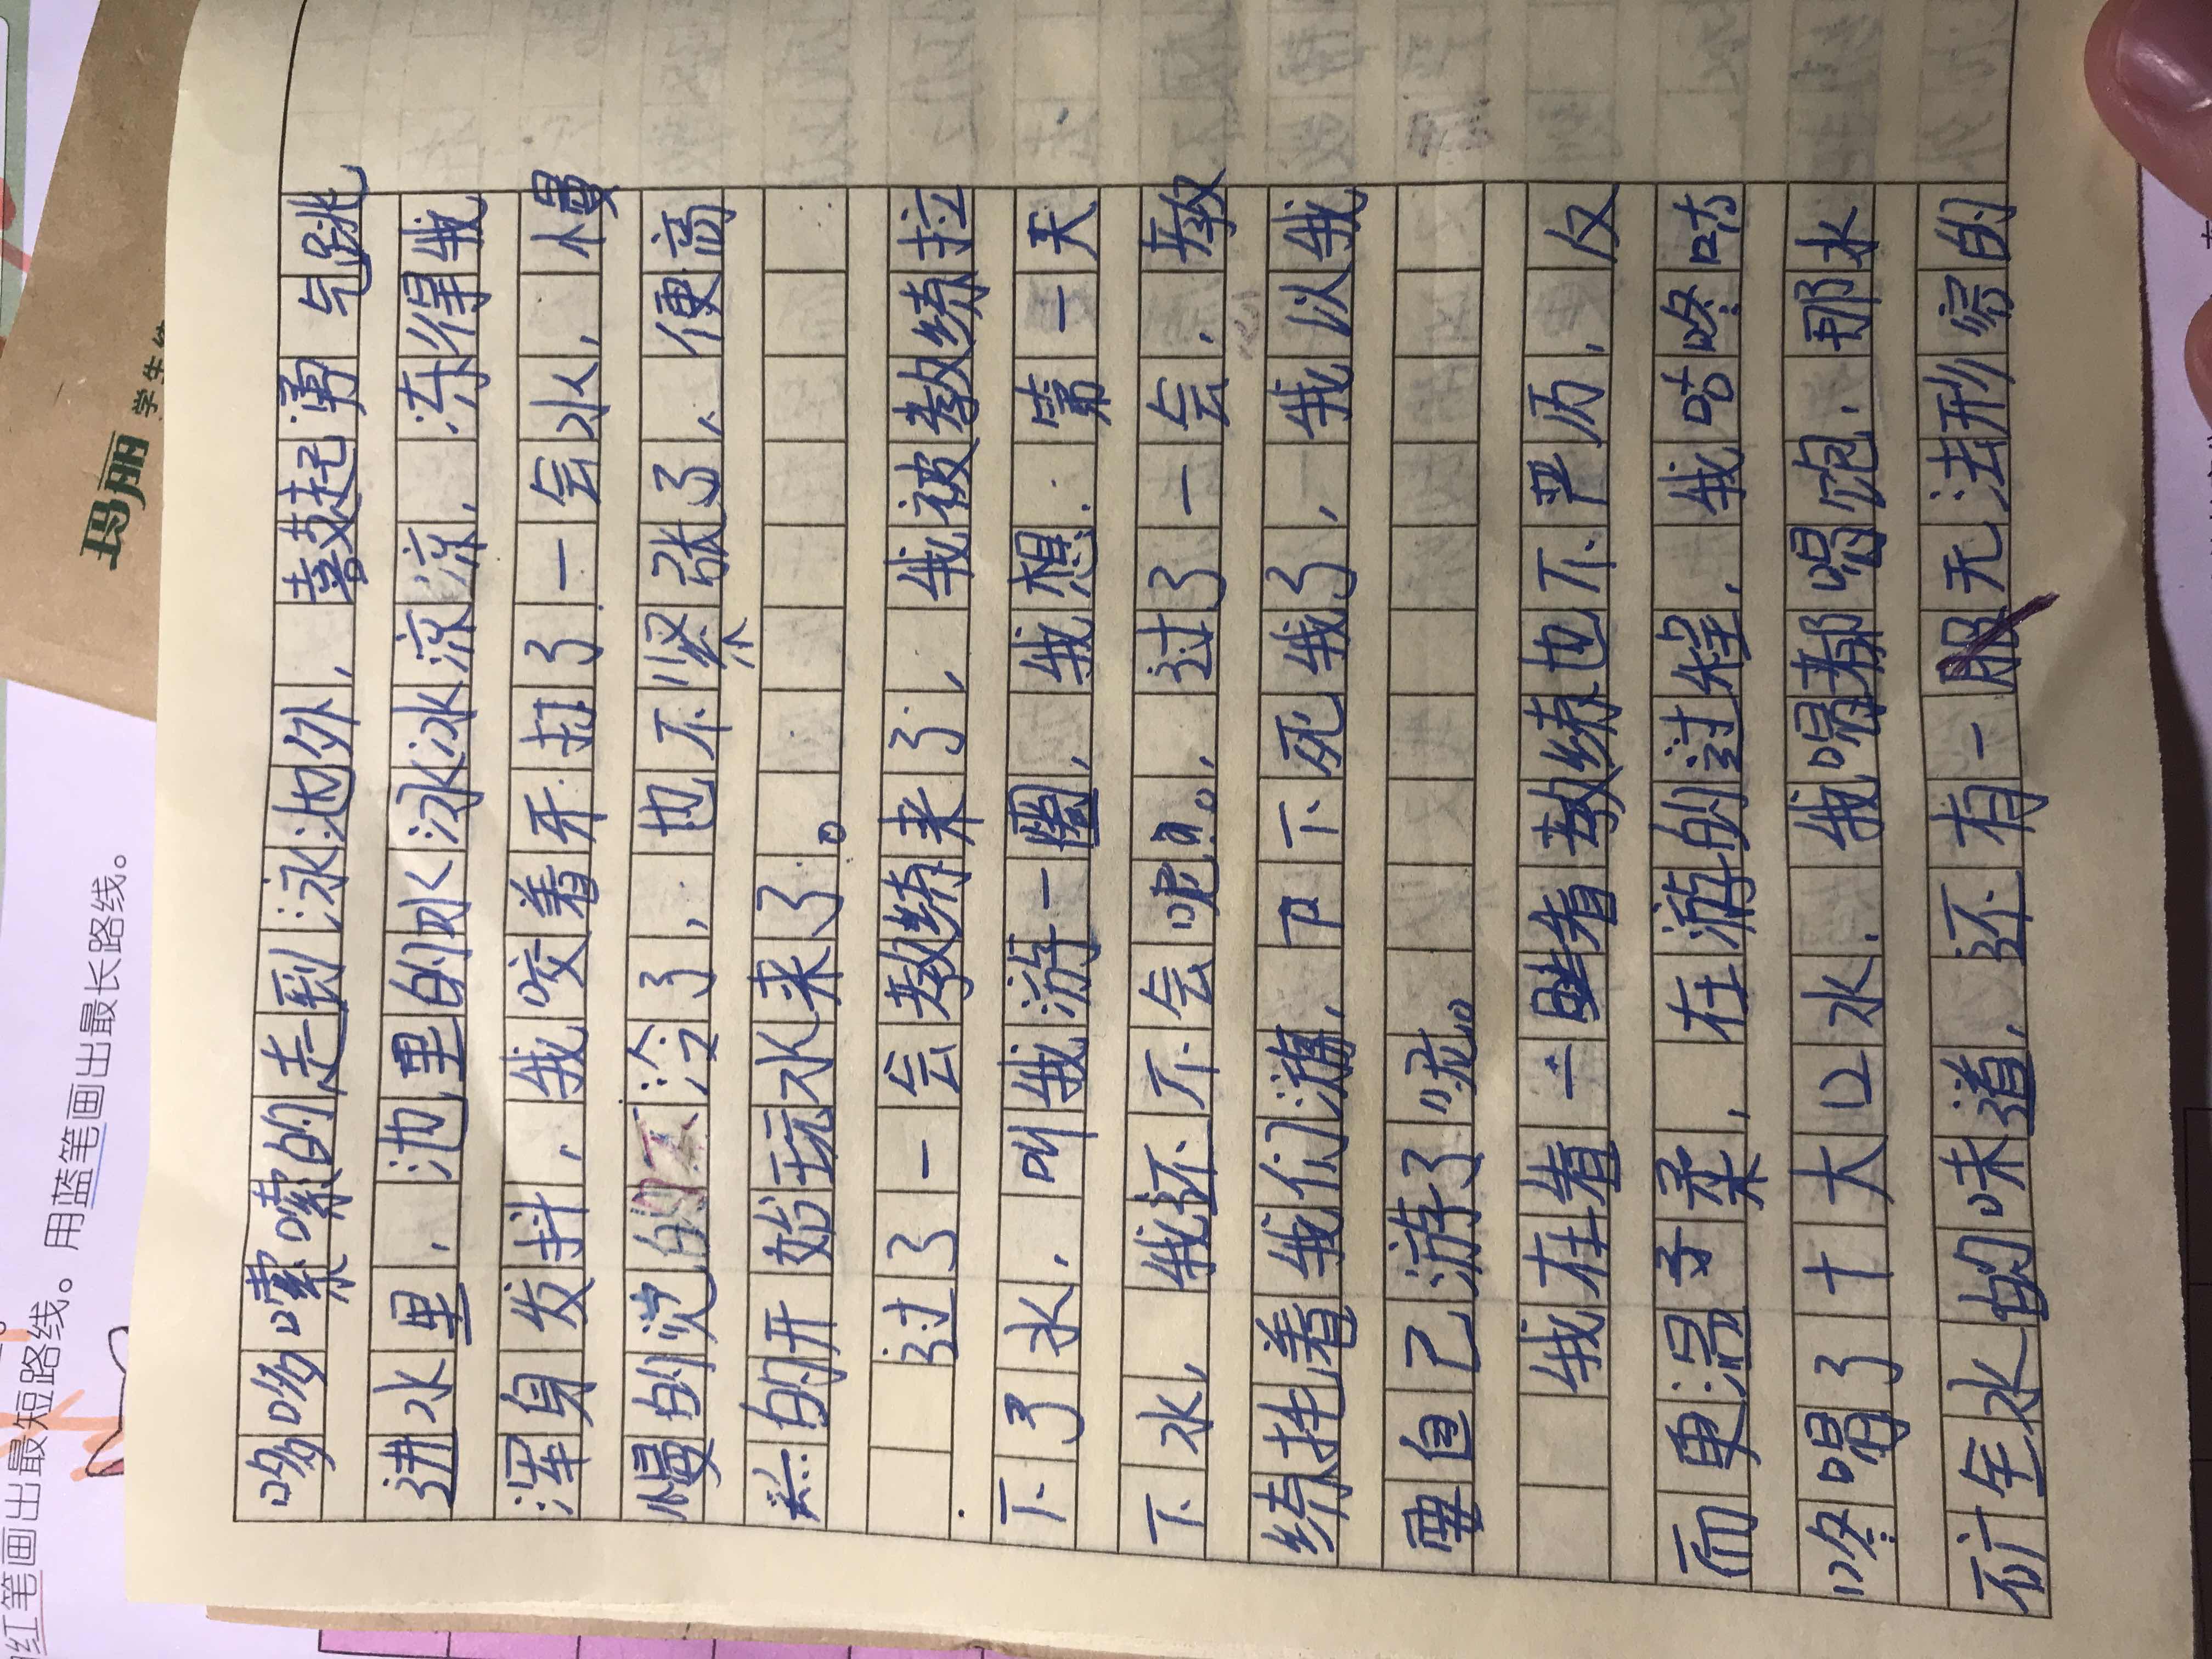 哆哆嗦嗦的走到泳池外，鼓起勇气跳
进水里，池里的水冰冰凉凉，冻得我
浑身发抖，我咬着牙打了一会水，慢
慢的觉的不冷了，也不紧张了、便高
兴的开始玩水来了。
过了一会教练来了，我被教练拉
下了水，叫我游一圈，我想，第一天
下水，我还不会呢。，过了一会，教
练拽着我们游，下死我了，我以我
要自己游了呢。
我在着一旦着教练也不严历，反
而更温予柔，在游的过程，我咕咚咕
咚喝了十大口水，我喝都喝饱，那水
可全水的味道，还有一服无法形容的
玛丽
学生
红笔画出最短路线。用蓝笔画出最长路线。